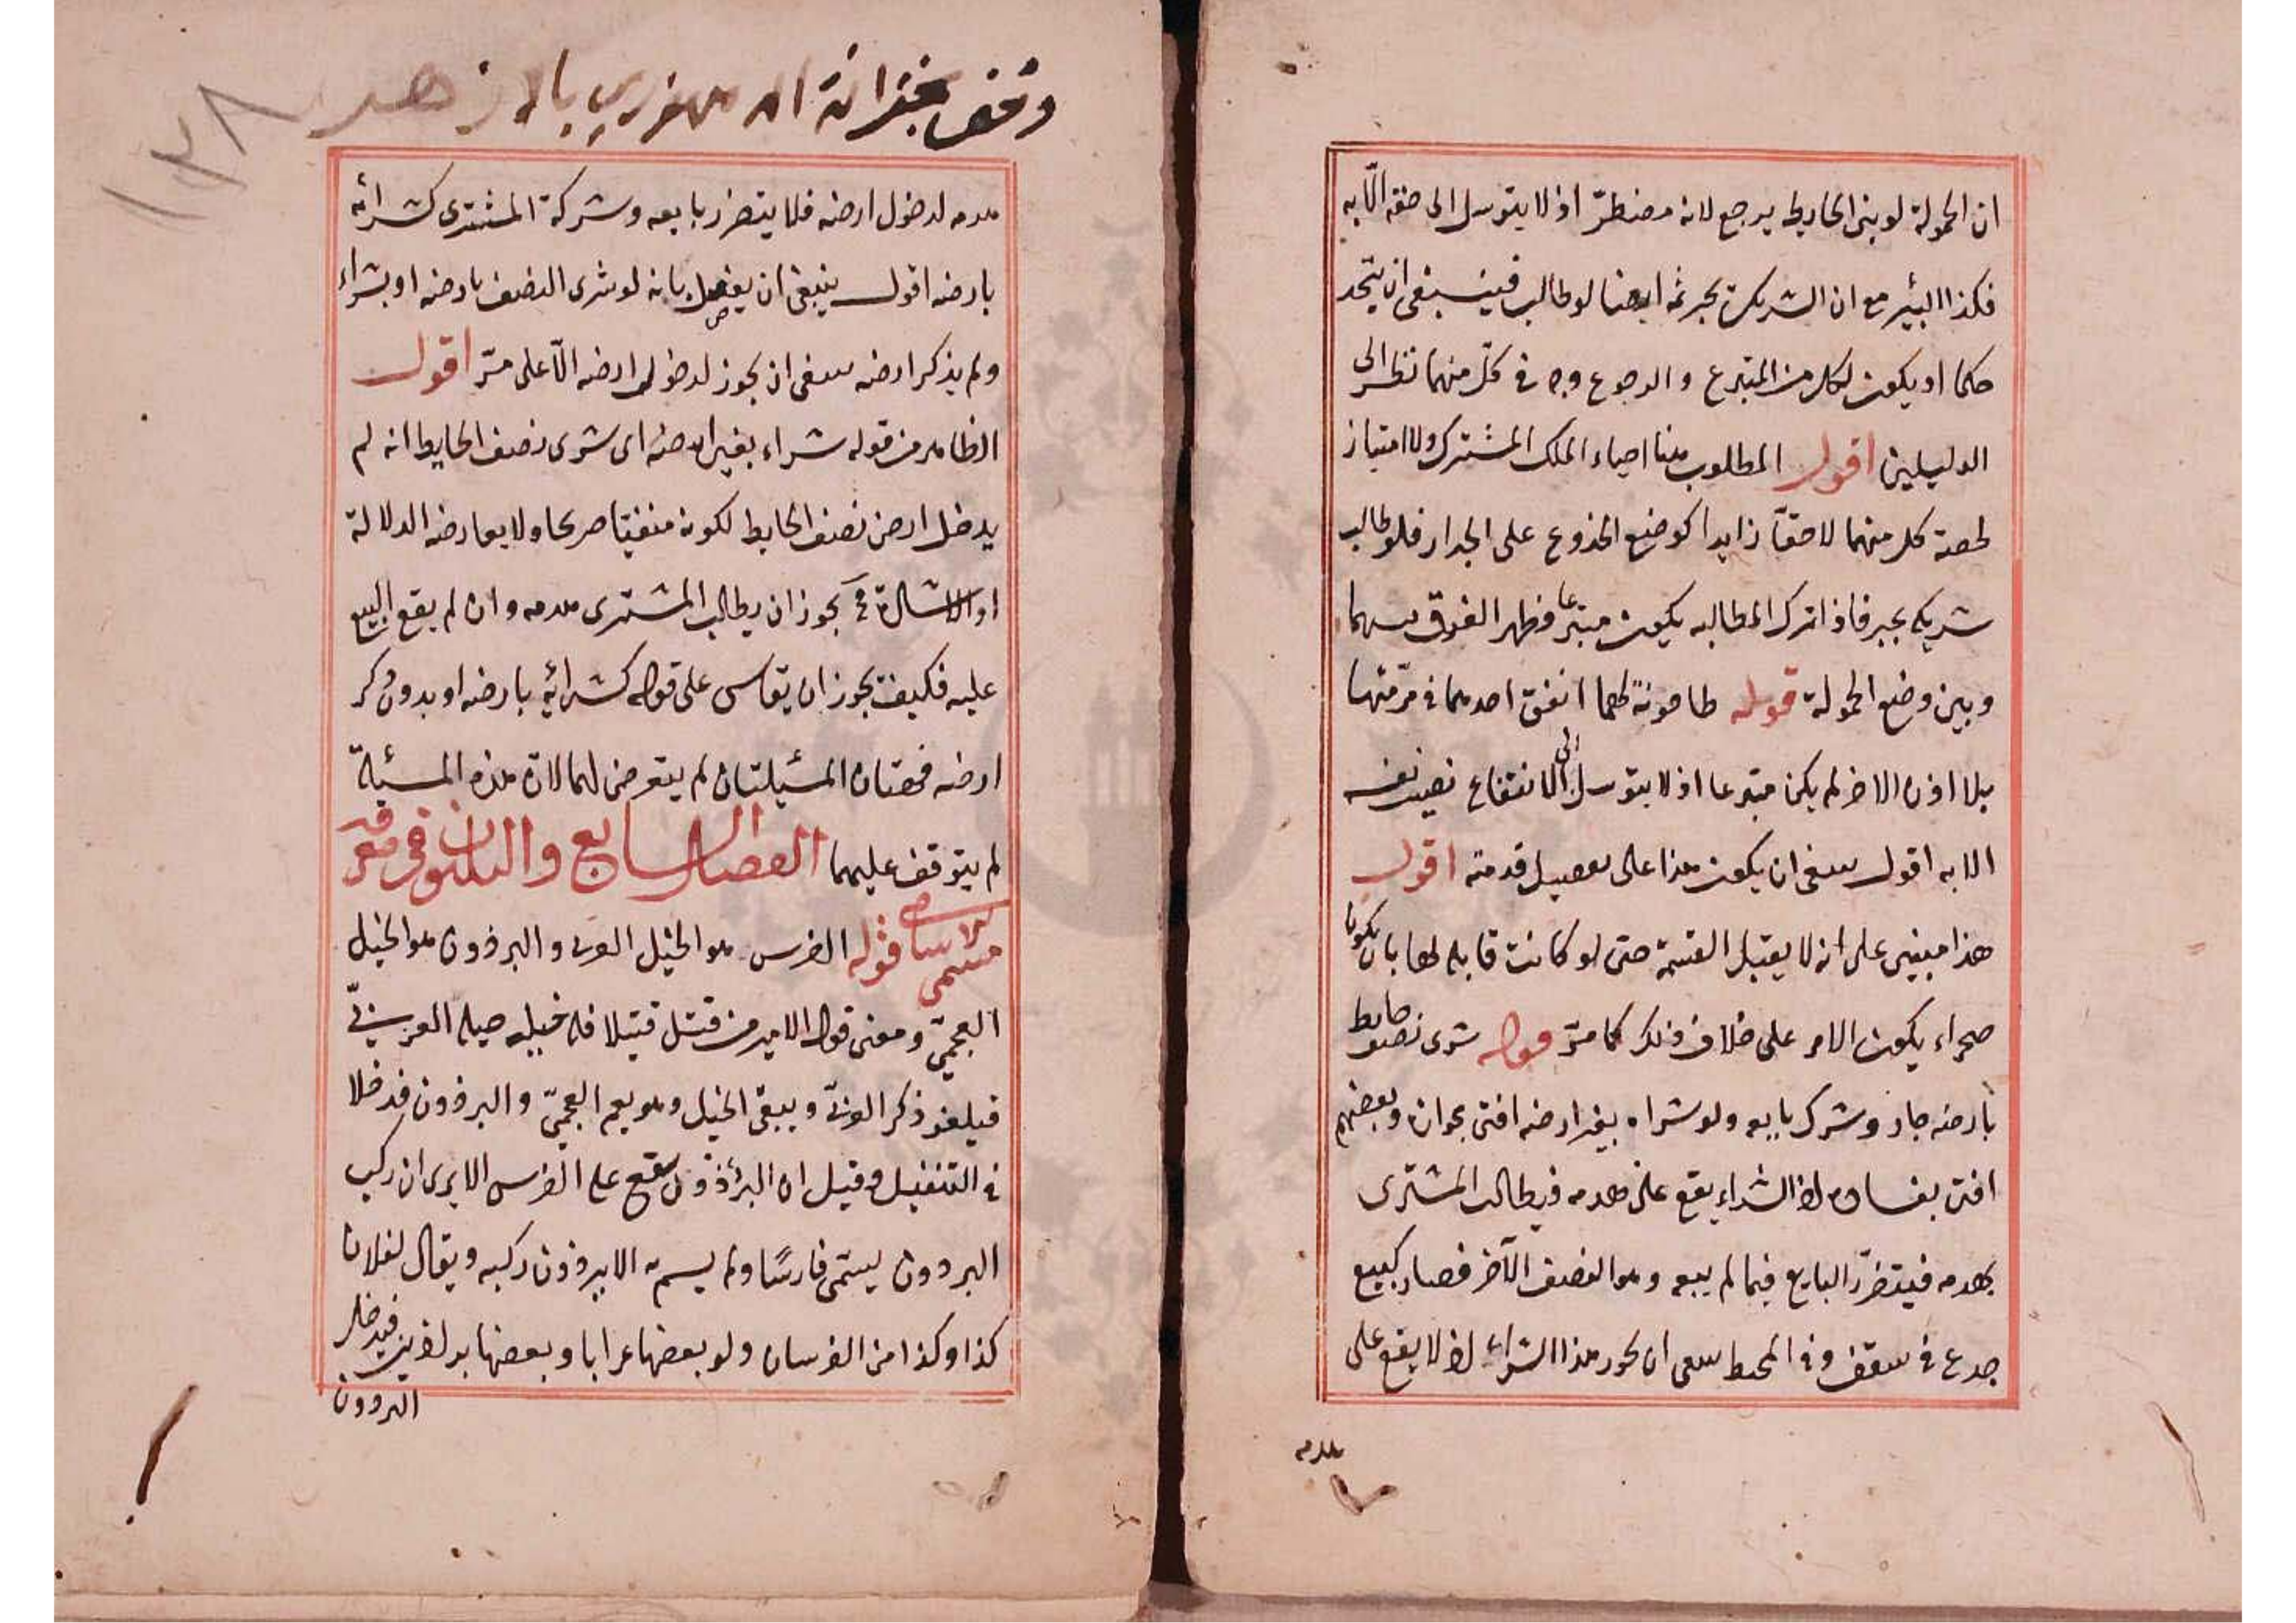 ان الحمولة لو بنى الحايط يرجع لانه مضطرّ اذ لا يتوسل الى حقه الّا به
فكذا البئير مع ان الشريك يجبر ثمه ايضا لو طالب فينسبغى ان يتحد
حكما او يكون لكل من المتبرع والرجوع وجه فى كلّ منهما نظر الى
الدليلين اقول المطلوب هنا احياء الملك المشترك ولا امتياز
لحصة كل منهما لا حقّا زايدا كوضع الجذوع على الجدار فلو طالب
شريكه يجبر فاذا ترك المطالبه يكون متبرعا فظهر الفرق بينهما
وبين وضع الحمولة قوله طاحونة لهما انفق احدهما فى مرّمتها
بلا اذن الاخر لم يكن متبرعا اذ لا يتوسل الى الانتفاع نصيب نفسه
الا به اقول ينبغى ان يكون هذا على تفصيل قدمته اقول
هذا مبنيى على انه لا يقبل القسمة حتى لو كانت قابله لها بان يكون
صحراء يكون الامر على خلاف ذلك كما مرّ قوله شرى نصف حايط
بارضه جاز وشرك بايعه ولو شراه بغير ارضه افتى بجوازه وبعضهم
افتى بفساده لان الشراء يقع على هدمه فيطالب المشترى
بهدمه فيتضرّر البايع فيما لم يبعه وهو النصف الآخر فصار كبيع
جدع فى سقف وفى المحيط ينبغى ان يجوز هذا الشراء لانه لا يقع على
هدمه
وقف بخزانة المهورى بالازهر
١٣٨
هدمه لدخول ارضه فلا يتضرر بايعه وشركة المشترى كشرائه
بارضه اقول ينبغى ان يفصل بانه لو شرى النصف بارضه او بشراء
ولم يذكر ارضه ينبغى ان يجوز لدخول ارضه الّا على مرّ اقول
الظاهر من قوله شراء بغير ارضه اى شرى نصف الحايط انه لم
يدخل ارض نصف الحايط لكونه منفيّا صريحا ولا يعارضه الدلالة
او الاشارة فح يجوز ان يطالب المشترى هدمه وان لم يقع البيع
عليه فكيف يجوز ان يقاس على قوله كشرائه بارضه او بدون ذكر
ارضه فهتان المسئيلتان لم يتعرض لهما لان هذه المسئيلة
لم يتوقف عليهما الفصل السابع والثلثون فى معرفة
مسمى قوله الفرس هو الخيل العربى والبرذون هو الخيل
العجمىّ ومعنى قول الامير من قتل قتيلا فله خيله
فيلغو ذكر العربىّ ويبقى الخيل وهو يعم العجمىّ والبرذون فدخلا
فى التنفيل وقيل ان البرذون يقع على الفرس الا يرى ان ركب
البرذون يستمى فارسًا ولم يسم به الا برذون ركبه ويقال لفلان
كذا وكذا من الفرسان ولو بعضها عرابا وبعضها برلذين فيدخل
البرذون